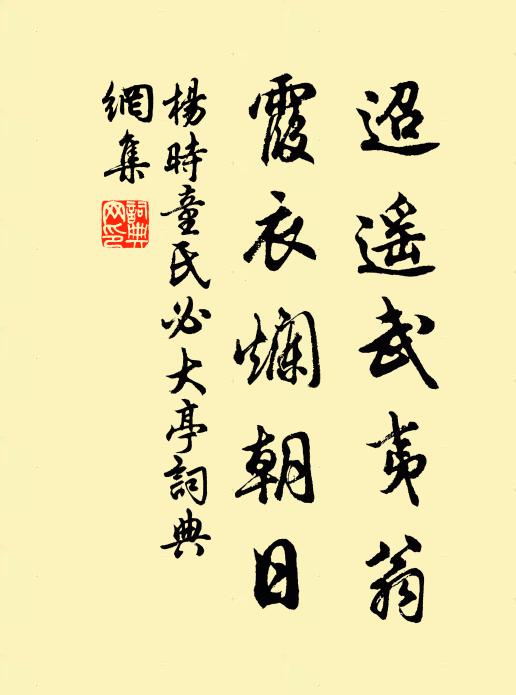 迢遥武夷翁
霞衣爛朝日
楊時童氏必大亭詞典
網集
詞典網印